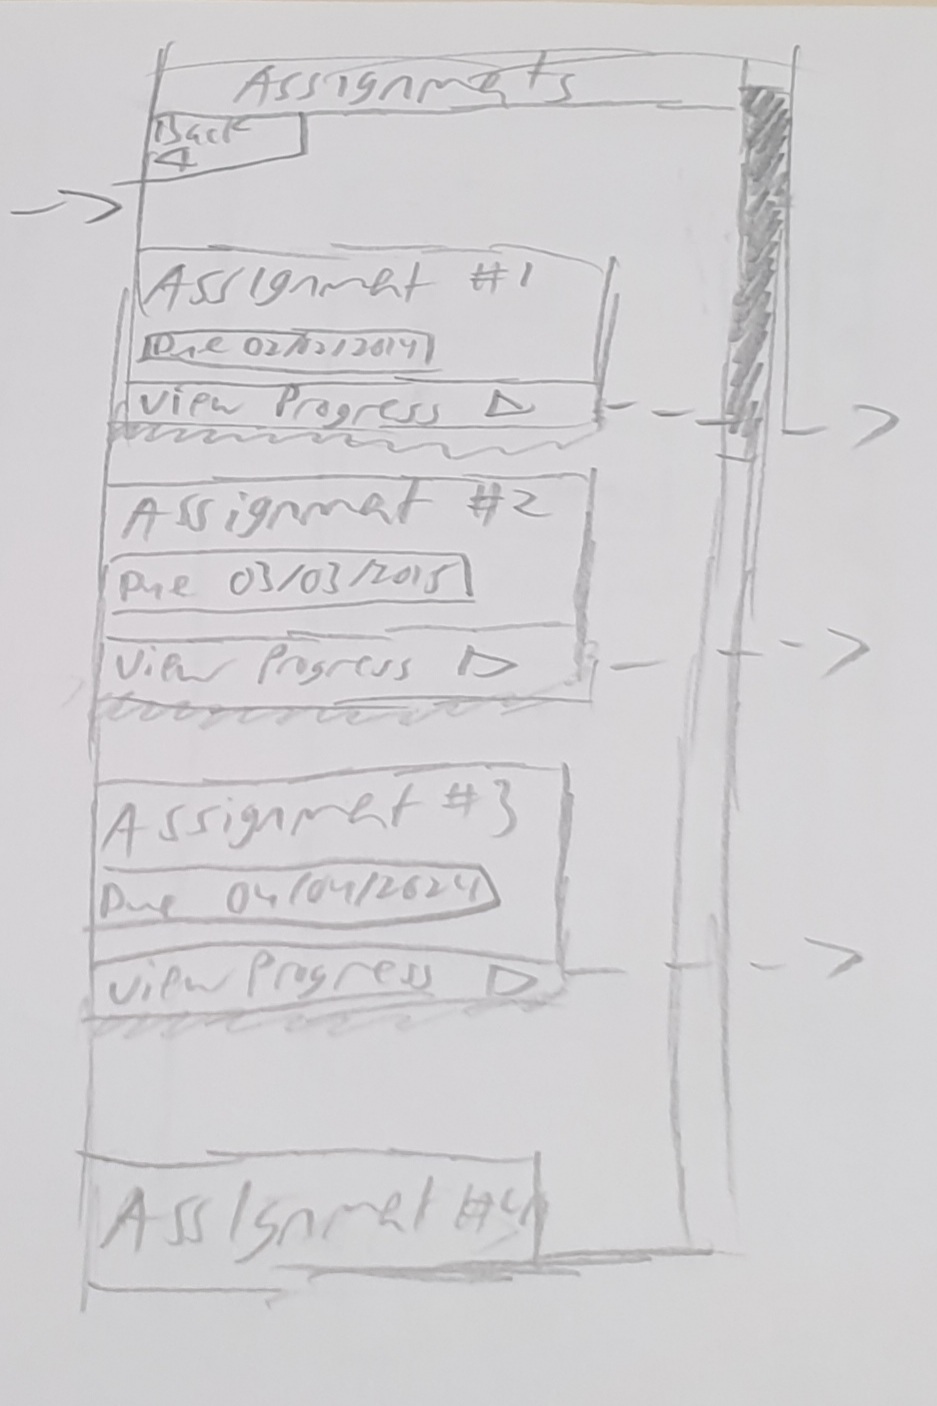 Assignments
Back
Assignment #1
Due 02/02/2014
View Progress
Assignment #2
Due 03/03/2015
View Progress
Assignment #3
Due 04/04/2024
View Progress
Assignment #4